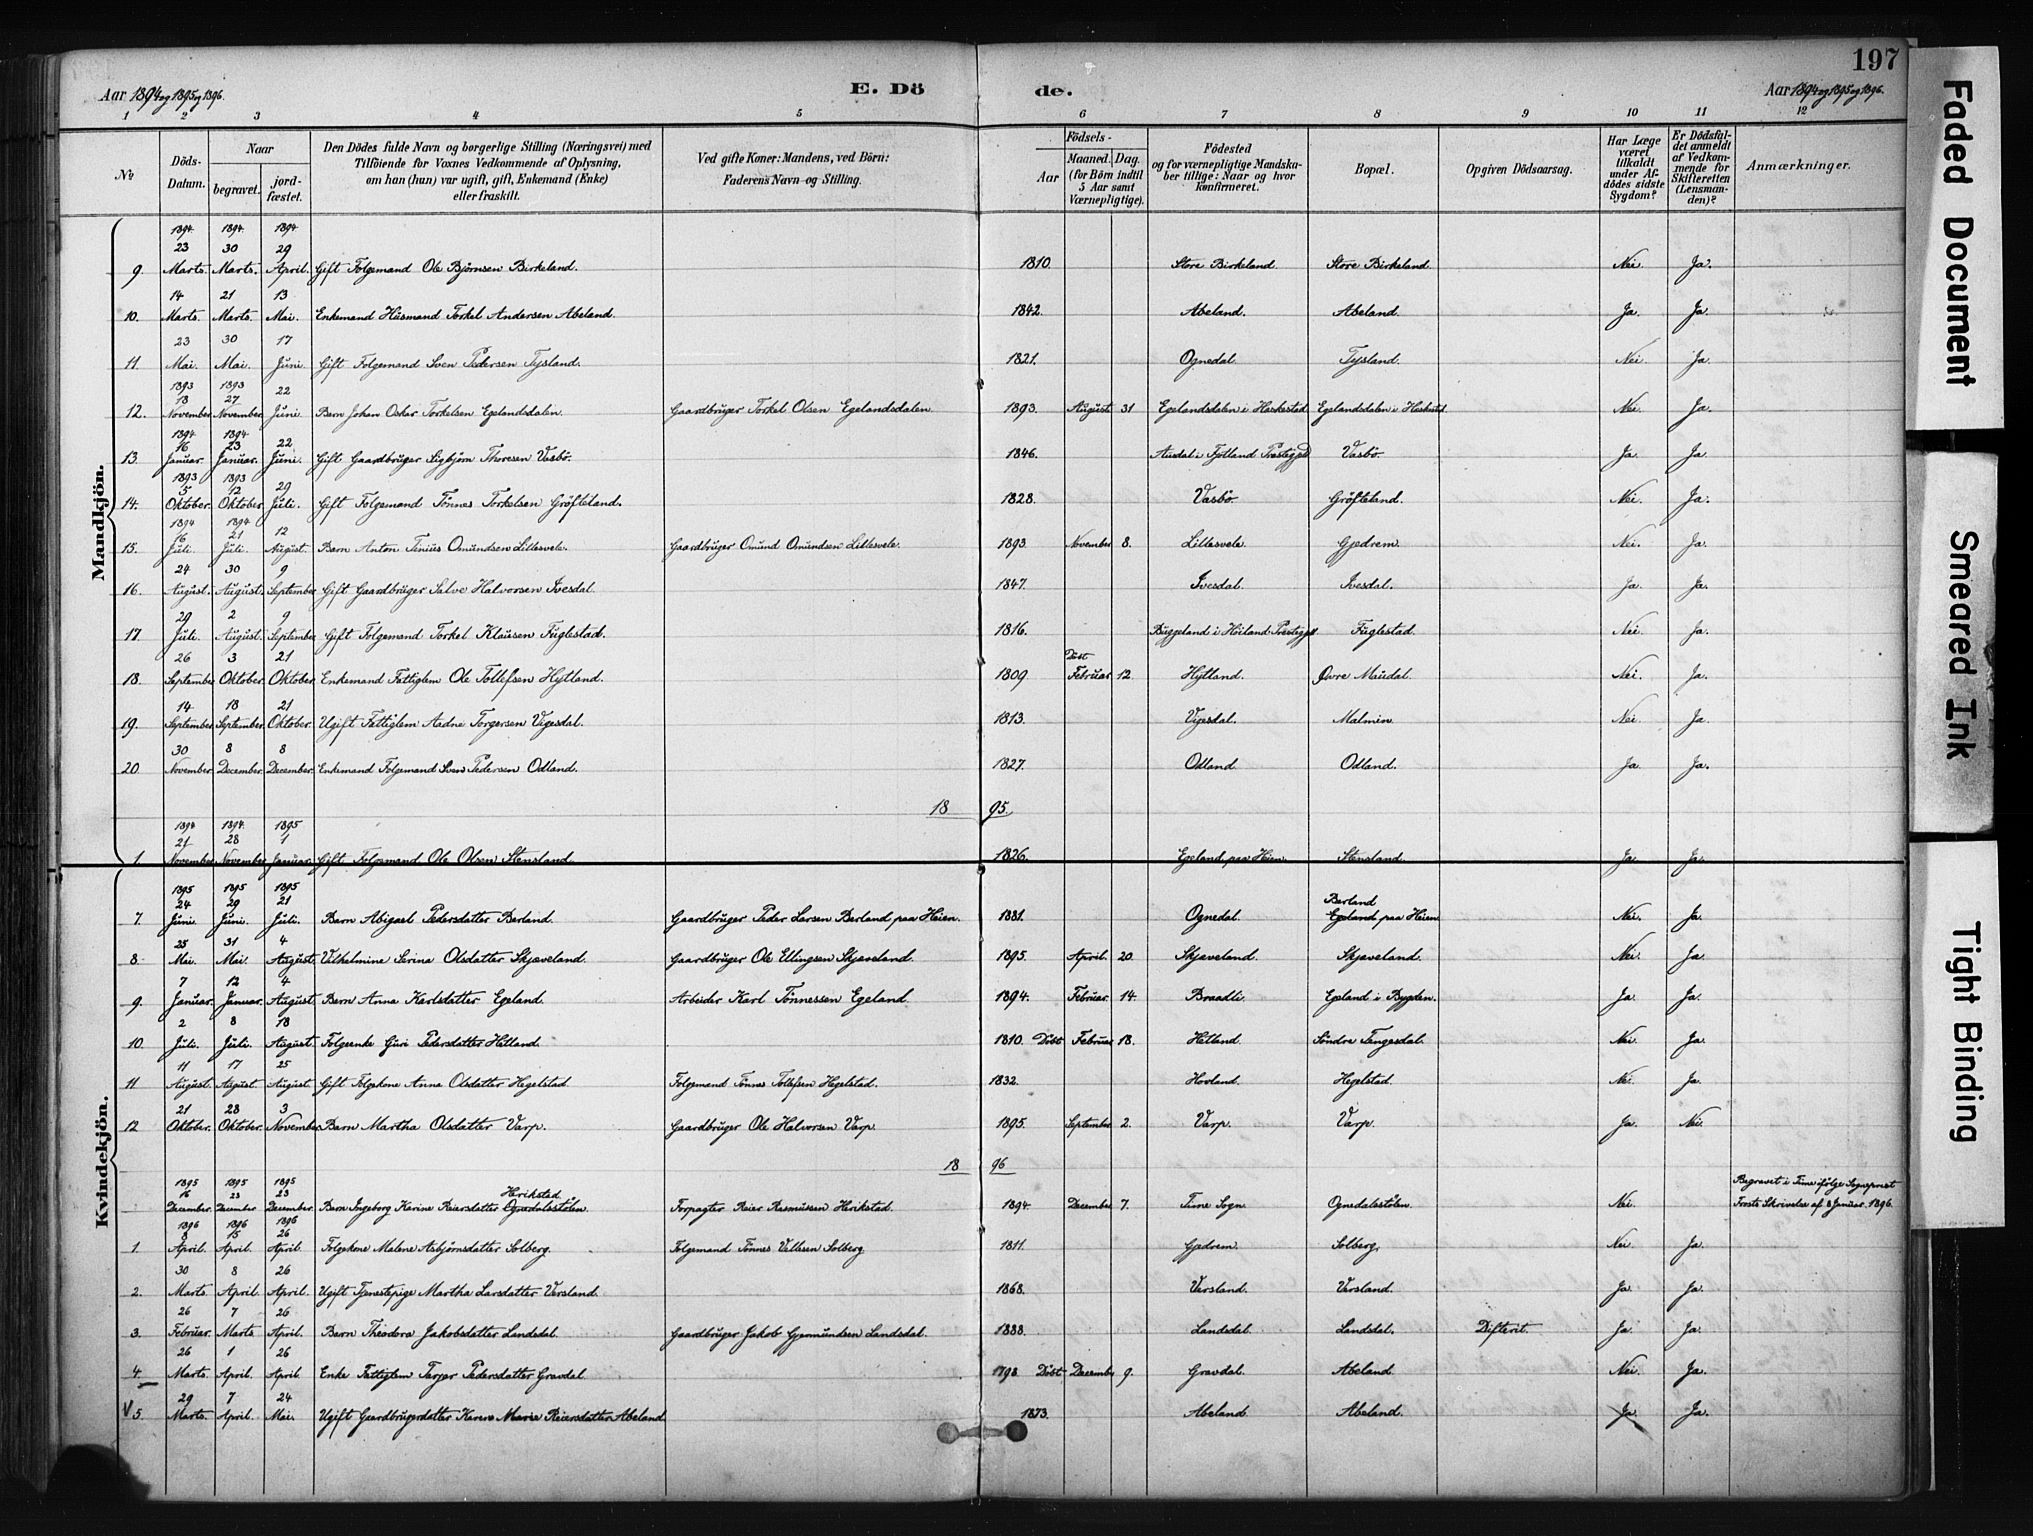 197
Aar 1894 og 1895 og 1896.
E. Dö de.
Aar 1894 og 1895 og 1896.
1 2 3 4 5 6 7 8 9 10 11 12
No
Döds-Datum.
Naar
begravet.
jord-fæstet.
Den Dödes fulde Navn og borgerlige Stilling (Næringsvei) med
Tilföiende for Voxnes Vedkommende af Oplysning,
om han (hun) var ugift, gift, Enkemand (Enke)
eller fraskilt.
Ved gifte Koner: Mandens, ved Börn:
Faderens Navn og Stilling.
Födsels-
Aar
Maaned. Dag.
(for Börn indtil
5 Aar samt
Værnepligtige).
Födested
og for værnepligtige Mandska-
ber tillige: Naar og hvor
konfirmeret.
Bopæl.
Opgiven Dödsaarsag.
Har Læge
været
tilkaldt
under Af-
dödes sidste
Sygdom?
Er Dödsfal-
det anmeldt
af Vedkom-
mende for
Skifteretten
(Lensman-
den)?
Anmærkninger.
Mandkjön.
1894 1894 1894
23 30 29
9 Marts. Marts. April. Gift Folgemand Ole Björnsen Birkeland. 1810. Store Birkeland Store Birkeland Nei. Ja.
14 21 13
10. Marts. Marts. Mai. Enkemand Husmand Torkel Andersen Abeland. 1842. Abeland. Abeland. Ja. Ja.
23 30 17
11 Mai. Mai. Juni. Gift Folgemand Sven Pedersen Tysland. 1821. Ognedal. Tysland. Nei Ja.
1893 1893
18 27 22
12. November. November. Juni Barn Johan Oskar Torkelsen Egelandsdalen. Gaardbruger Torkel Olsen Egelandsdalen 1893. August 31 Egelandsdalen i Heskestad Egelandsdalen i Heskestad Nei Ja.
1894 1894
16 23 22
13. Januar. Januar. Juni. Gift Gaardbruger Sigbjörn Thoresen Vasbö. 1846. Ausdal i Fjotland Prestegjeld Vasbö. Ja Ja
1893 1893
5 12 29
14. Oktober. Oktober. Juli. Gift Folgemand Tönnes Torkelsen Gröfteland. 1828. Vasbö Gröfteland. Nei. Ja.
1894 1894
16 21 12
15. Juli. Juli. August. Barn Anton Tenius Omundsen Lillesvele. Gaardbruger Omund Omundsen Lillesvele. 1893 November 8. Lillesvele. Gjedrem. Nei. Ja.
24 30 9
16. August. August. September Gift Gaardbruger Salve Halvorsen Ivesdal. 1847. Ivesdal. Ivesdal. Ja Ja.
29 2 9
17 Juli. August. September Gift Folgemand Torkel Klausen Fuglestad. 1816. Buggeland i Höiland Prestegjeld Fuglestad. Nei Ja.
26 3 21 Döbt
18. September Oktober Oktober. Enkemand Fattiglem Ole Tollefsen Hytland. 1809 Februar 12. Hytland. Övre Maudal. Nei. Ja.
14 18 21
19. September September Oktober. Ugift Fattiglem Aadne Torgersen Vigesdal. 1813. Vigesdal. Malmin Nei Ja
30 8 8
20. November December. December. Enkemand Folgemand Sven Pedersen Odland. 1827. Odland Odland. Ja Ja.
18 95.
1894 1894 1895
21 28 1
1. November November Januar. Gift Folgemand Ole Olsen Stensland. 1826. Egeland paa Heien. Stensland. Ja. Ja.
Kvindekjön.
1895 1895 1895
24 29 21 Berland
7 Juni. Juni. Juli. Barn Abigael Pedersdatter Berland. Gaardbruger Peder Larsen Berland paa Heien. 1881. Ognedal. Egeland paa Heien Nei. Ja
25 31 4
8 Mai. Mai. August. Vilhelmine Serina Olsdatter Skjæveland. Gaardbruger Ole Ellingsen Skjæveland. 1895. April. 20. Skjæveland. Skjæveland. Nei. Ja.
7 12 4
9 Januar. Januar. August Barn Anna Karlsdatter Egeland. Arbeider Karl Tönnessen Egeland. 1894. Februar 14. Braadli. Egeland i Bygden. Ja. Ja.
2 8 18
10. Juli. Juli. August. Folgeenke Guri Pedersdatter Hetland. 1810. Döbt Februar 18. Hetland. Söndre Tengesdal. Nei Ja.
11 17 25
11 August. August August Gift Folgekone Anna Olsdatter Hegelstad. Folgemand Tönnes Tollefsen Hegelstad. 1832. Hovland. Hegelstad. Nei. Ja.
21 28 3
12 Oktober. Oktober. November. Barn Martha Olsdatter Varp. Gaardbruger Ole Halvorsen Varp. 1895. September 2. Varp. Varp. Ja. Nei.
18 96
1895 1895 1895
16 23 23 Herikstad Begravet i Time ifölge Sogneprest
December. December December. Barn Ingeborg Karine Reiersdatter Ognedalsstölen. Forpagter Reier Rasmussen Herikstad. 1894. December 7. Time Sogn Ognedalsstölen. Nei. Frosts Skrivelse af 8 Januar 1896.
1896 1896 1896
8 15 26
1. April. April. April. Folgekone Malene Asbjörnsdatter Solberg. Folgemand Tönnes Vellesen Solberg 1811. Gjedrem. Solberg. Nei. Ja.
30 8 26
2. Marts. April. April. Ugift Tjenestepige Martha Larsdatter Versland. 1868. Versland. Versland. Ja Ja.
26 7 26
3. Februar. Marts April. Barn Theodora Jakobsdatter Landsdal. Gaardbruger Jakob Gjermundsen Landsdal. 1888. Landsdal. Landsdal. Difterit. Ja. Ja.
26 1 26
4. Marts. April. April Enke Fattiglem Terjer Pedersdatter Gravdal 1798. Döbt December 9. Gravdal. Abeland. Nei. Ja.
29 7 24
V 5. Marts. April. Mai. Ugift Gaardbrugerdatter Karen Marie Reiersdatter Abeland 1873. Abeland Abeland. Ja Ja.
Faded Document
Smeared Ink
Tight Binding